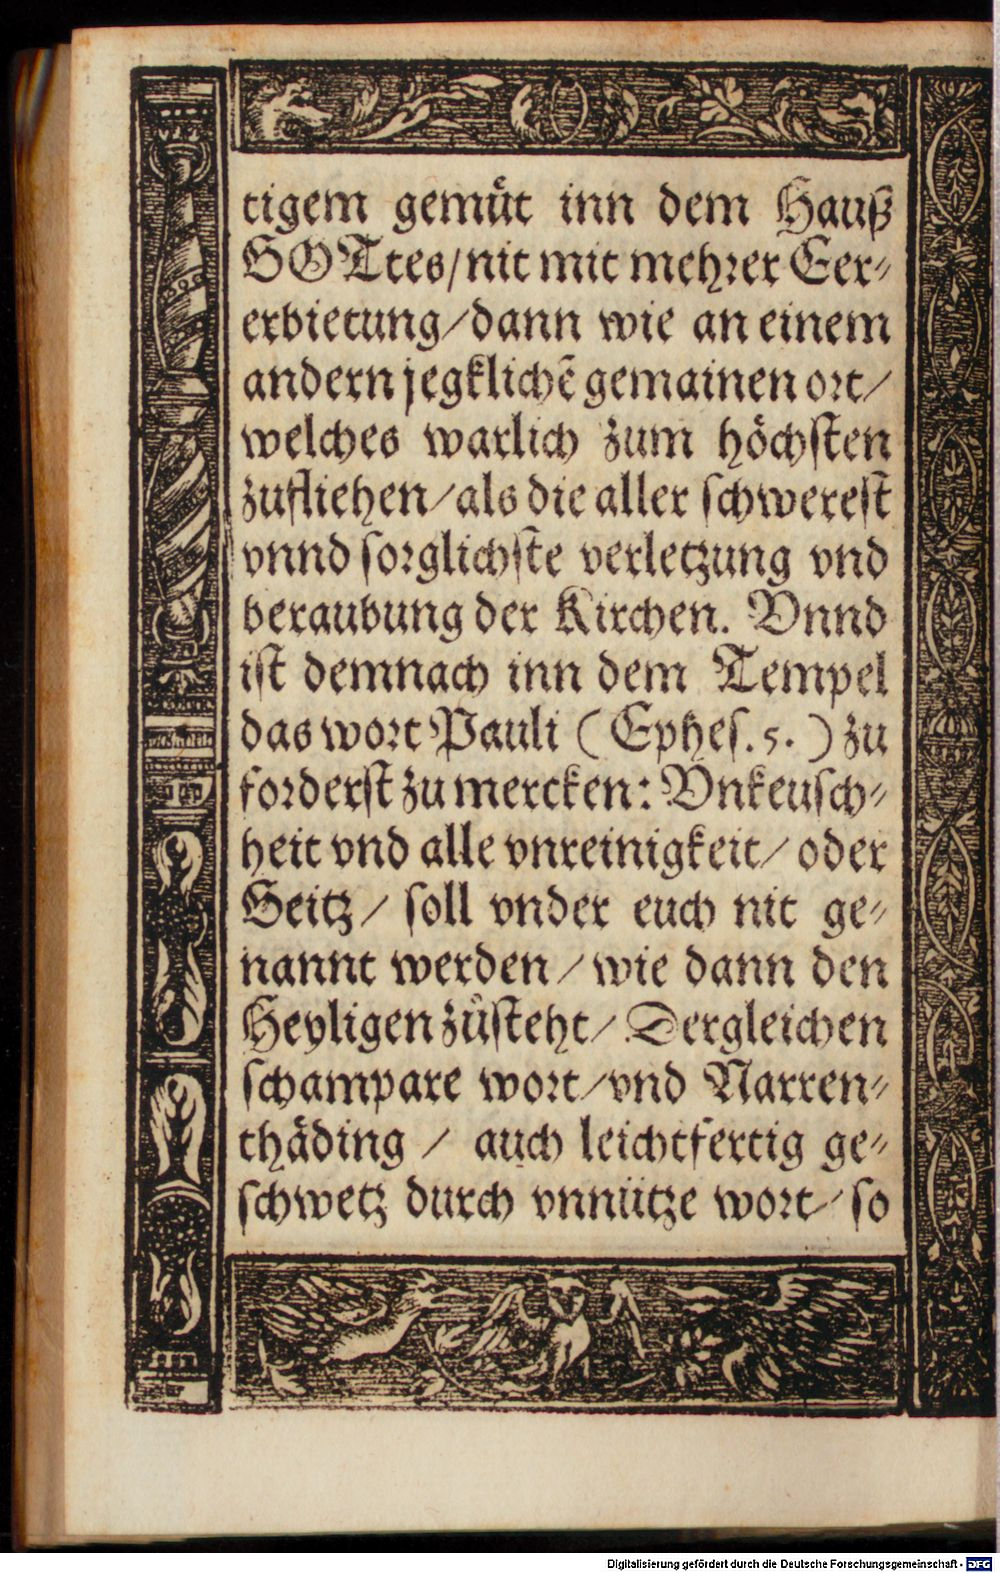 tigem gemuͤt inn dem Hauß
GOTtes/nit mit mehrer Eer⸗
erbietung/dann wie an einem
andern jegklichẽ gemainen ort/
welches warlich zum hoͤchſten
zufliehen/als die aller ſchwereſt
vnnd ſorglichſte verletzung vnd
beraubung der Kirchen. Vnnd
iſt demnach inn dem Tempel
das wort Pauli (Epheſ. 5.) zu
forderſt zu mercken: Vnkeuſch⸗
heit vnd alle vnreinigkeit/ oder
Geitz/ ſoll vnder euch nit ge⸗
nannt werden/ wie dann den
Heyligen zuͤſteht/ Dergleichen
ſchampare wort/vnd Narren⸗
thaͤding / auch leichtfertig ge⸗
ſchwetz durch vnnuͤtze wort/ ſo
Digitalisierung gefördert durch die Deutsche Forschungsgemeinschaft - DFG